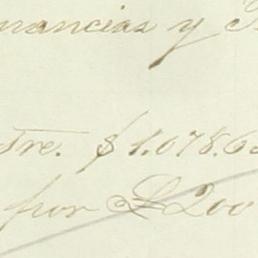 nancias y
tre. $1.078.6
por £200